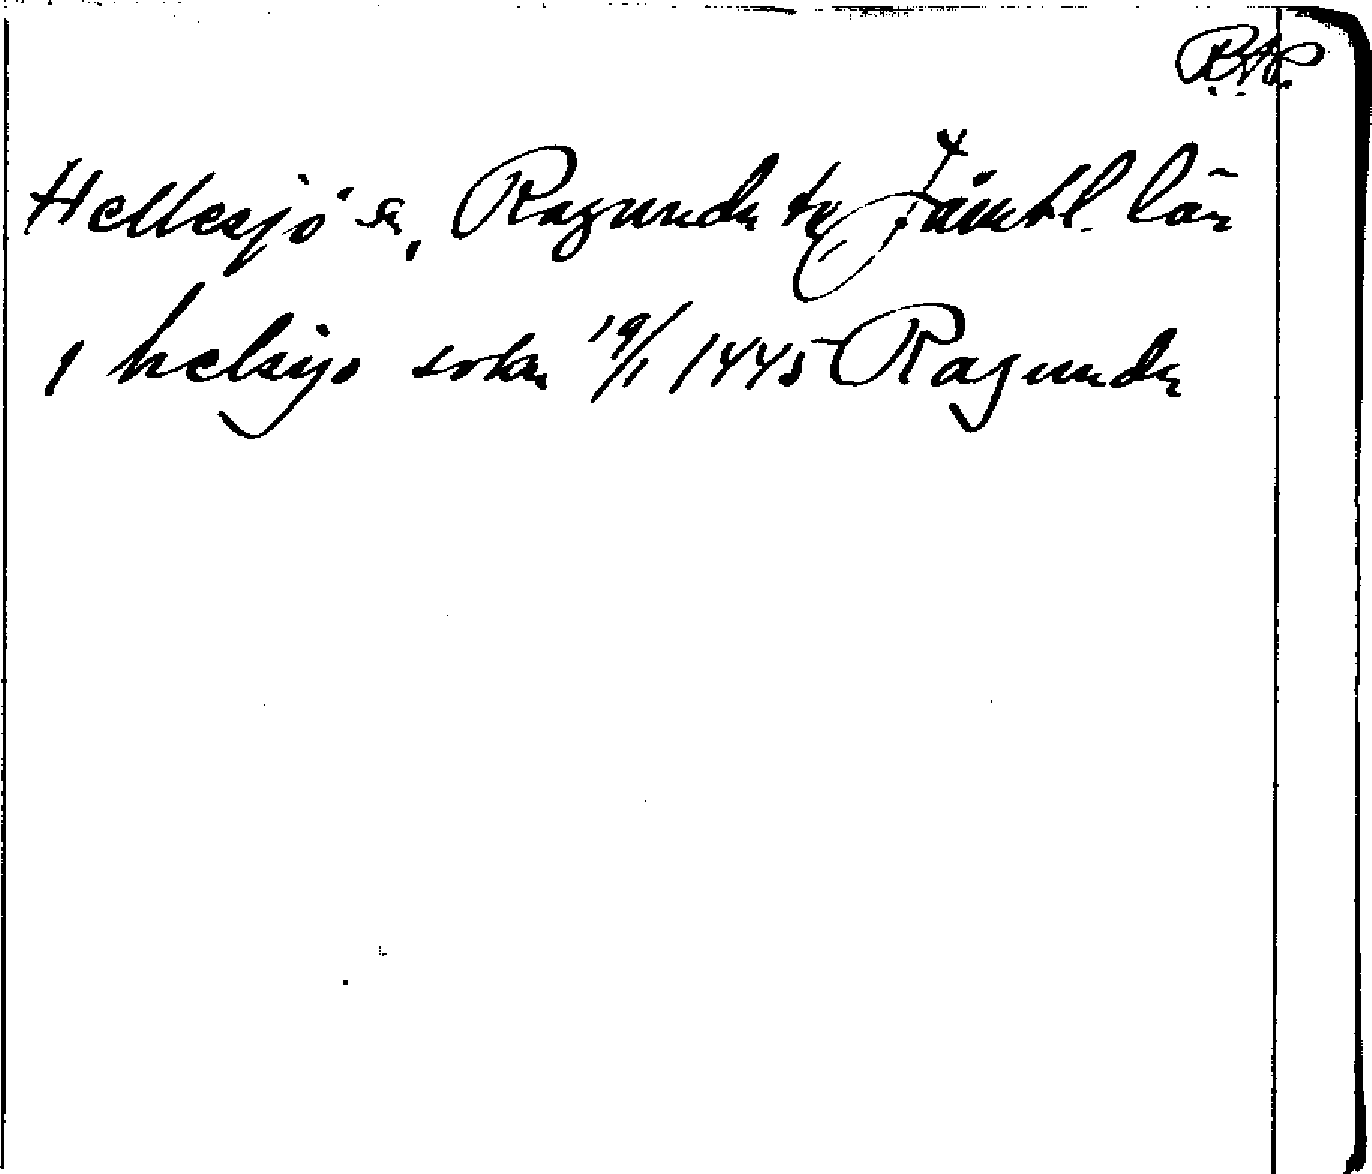 Hellesjö sn, Ragunda tg Jämtl. län
i helsyo sokn 19/1 1445 Ragunda